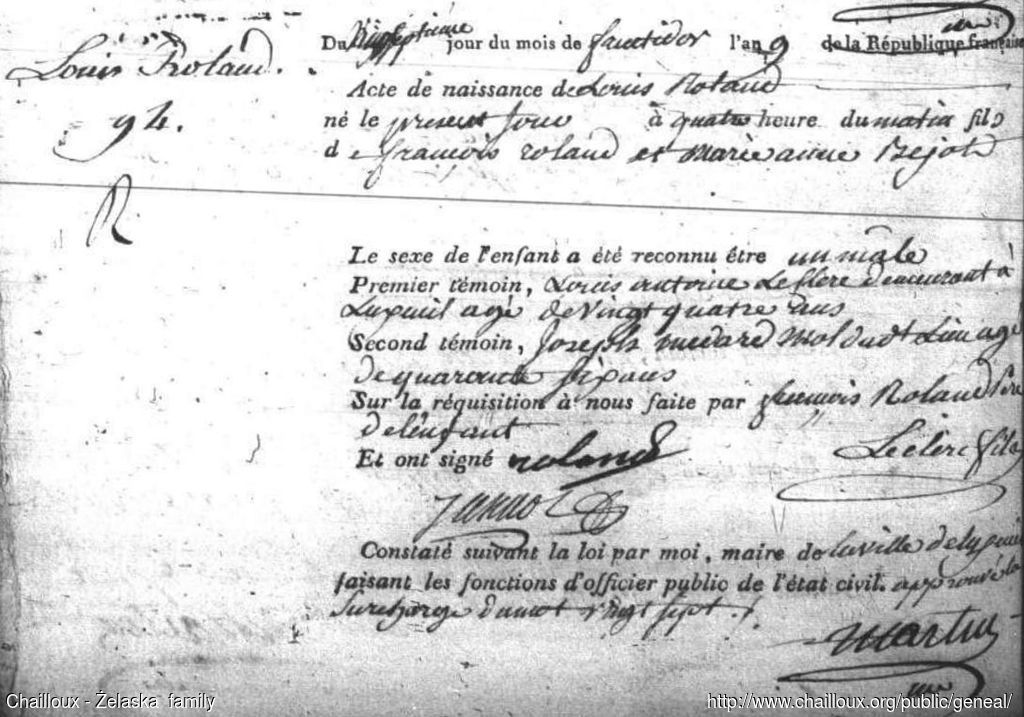 Louis Roland.
94.
R
Du Vingt Septieme jour du mois de fructidor l'an 9 de la République française
Acte de naissance de Louis Roland
né le present Jour à quatre heure du matin fils
de françois roland et marie anne Bejot
Le sexe de l'enfant a été reconnu être un mâle
Premier témoin, Louis antoine Leclerc demeurant à
Luxeuil agé de Vingt quatre ans
Second témoin, Joseph medard agé
de quarante six ans
Sur la réquisition à nous faite par françois Roland Pere
de l'enfant
Et ont signé roland Leclerc fils
Constaté suivant la loi par moi, maire de la ville de luxeuil
faisant les fonctions d'officier public de l'état civil. approuvé la
Surcharge du mot vingt sept
martin
Chailloux - Želaska family
http://www.chailloux.org/public/geneal/